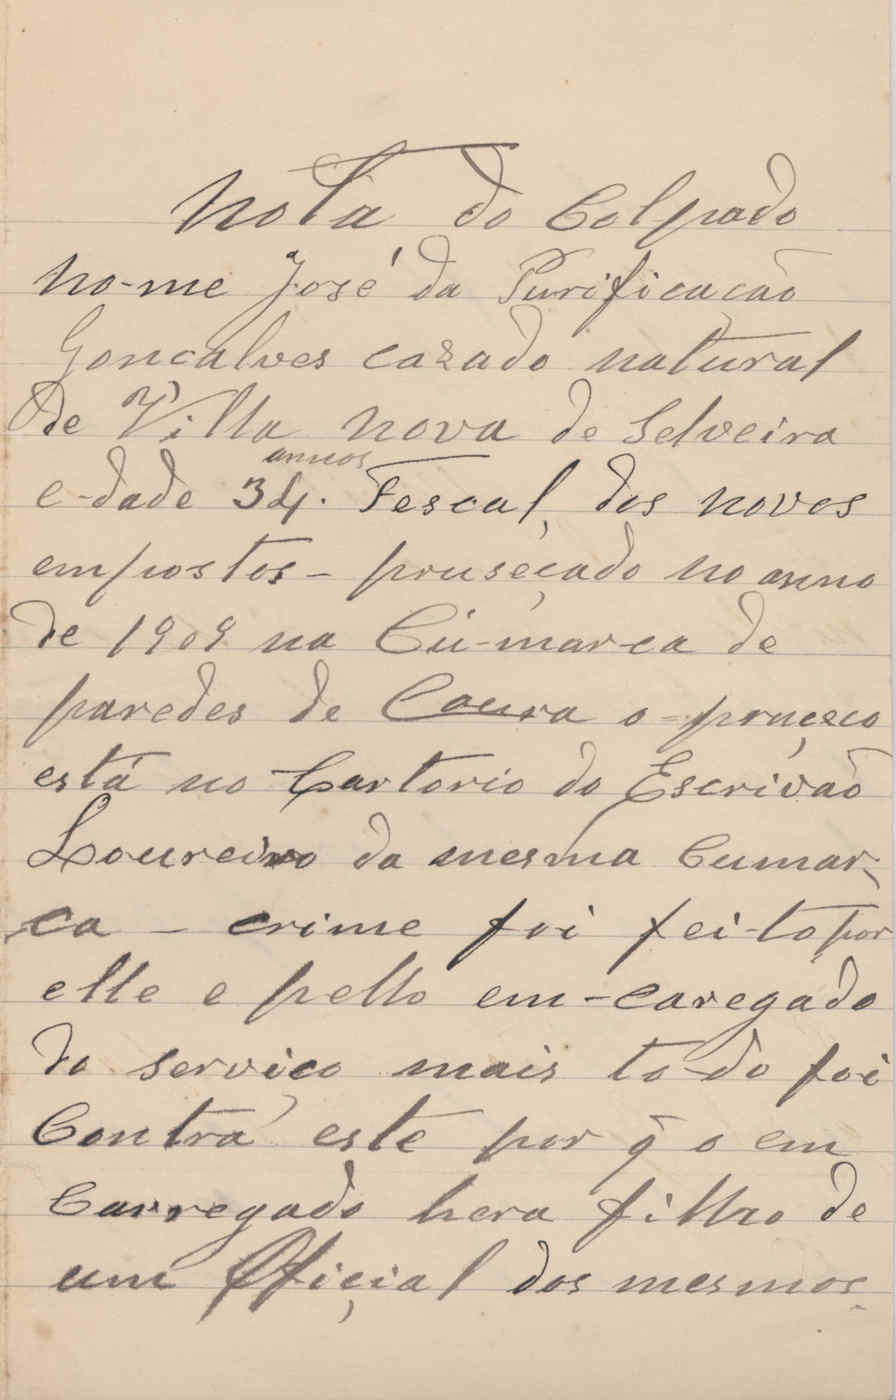 Nota do Colpado
no-me José da Purificação
Gonçalves cazado natural
de Villa Nova de Selveira
e-dade 34 annos. Fescal, dos novos
empostos - pruseçado no anno
de 1909 na Cu-mar-ca de
paredes de Coura o-pruçeço
está no Cartorio do Escrivão
Loureiro da mesma Cumar-
ca - crime foi fei-to por
elle e pello em-caregado
do serviço mais to-do foi
Contra este por q̃ o em
Carregado hera filho de
um Ofiçial dos mesmos